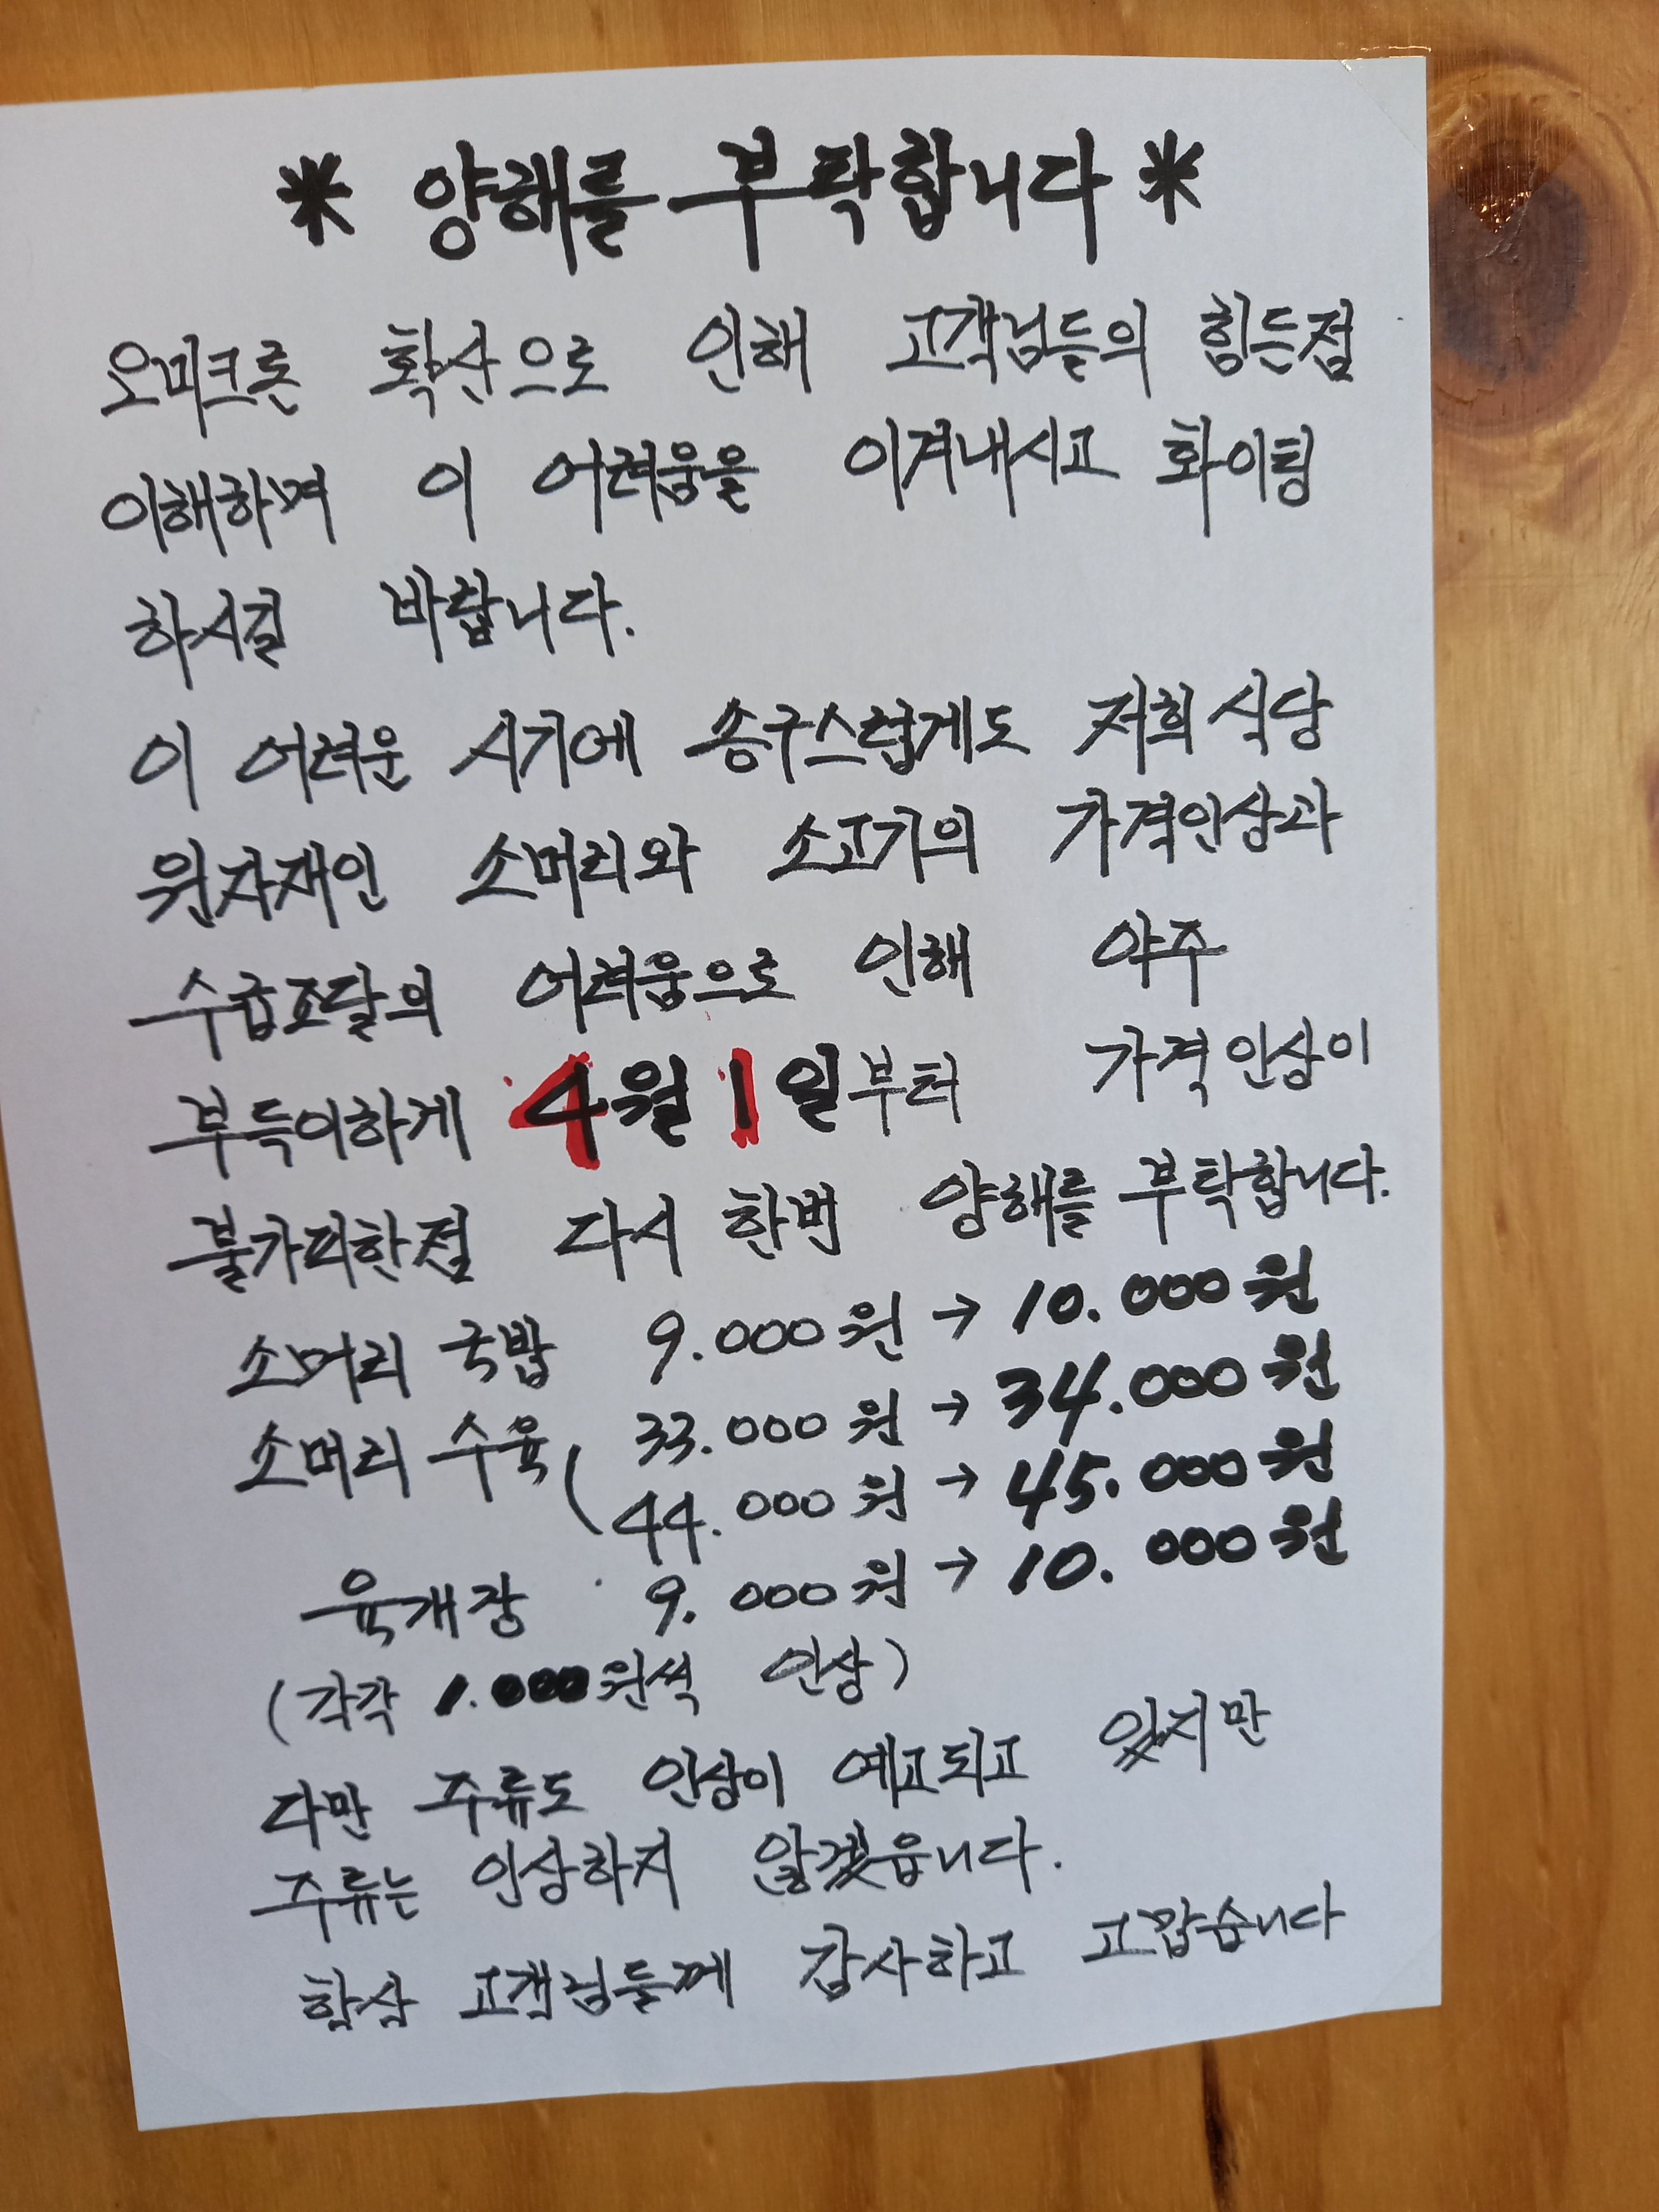 * 양해를 부탁합니다 *
오미크론 확산으로 인해 고객님들의 힘든점
이해하며 이 어려움을 이겨내시고 화이팅
하시길 바랍니다.
이 어려운 시기에 송구스럽게도 저희 식당
원자재인 소머리와 소고기의 가격인상과
수급조달의 어려움으로 인해 아주
부득이하게 4월 1일부터 가격인상이
불가피한점 다시 한번 양해를 부탁합니다.
소머리 국밥 9.000원 → 10.000원
소머리 수육 ( 33.000원 → 34.000원
44.000원 → 45.000원
육개장 9.000원 → 10.000원
(각각 1.000원씩 인상)
다만 주류도 인상이 예고되고 있지만
주류는 인상하지 않겠읍니다.
항상 고객님들께 감사하고 고맙습니다